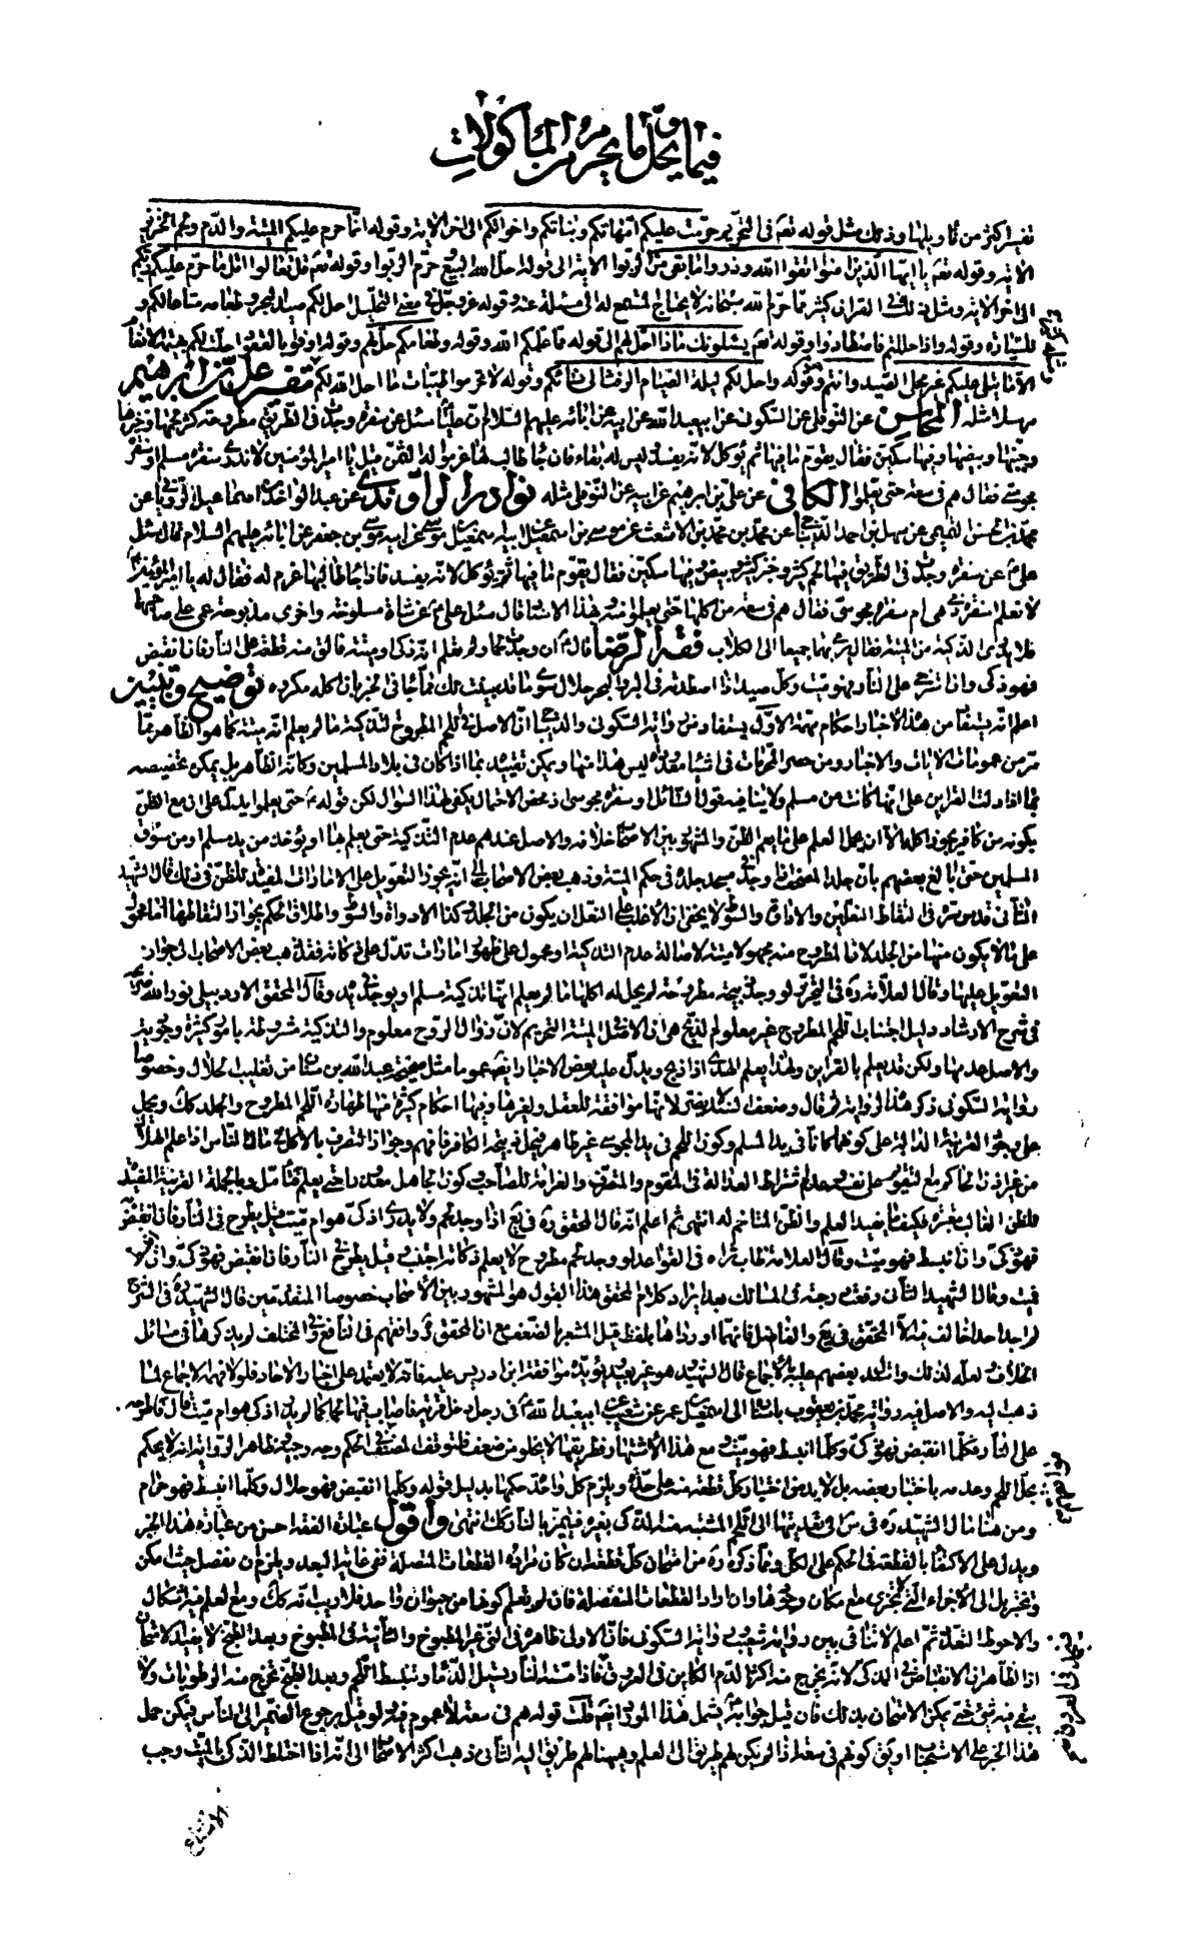 فيما يحل وما يحرم من المأكولات
تفسيرا كثر من تاويلها وذلك مثل قوله تعم فى التحريم حرمت عليكم امهاتكم وبناتكم واخواتكم الى اخر الاية وقوله انما حرم عليكم الميتة والدم ولحم الخنزير
الاية وقوله تعم يا ايها الذين امنوا اتقوا الله وذروا ما بقى من الربوا الاية الى قوله احل الله البيع وحرم الربوا وقوله تعم قل تعالوا اتل ما حرم عليكم ربكم
الى اخر الاية ومثل ذلك فى القران كثير مما حرم الله سبحانه لا يحتاج المستمع له الى مسئلة عنه وقوله عز وجل فى معنى التحليل احل لكم صيد البحر وطعامه متاعا لكم و
للسيارة وقوله واذا حللتم فاصطادوا وقوله تعم يسئلونك ماذا احل لهم الى قوله مما علمكم الله وقوله وطعامكم حل لهم وقوله اوفوا بالعقود احلت لكم بهيمة الانعام
الا ما يتلى عليكم غير محلى الصيد وانتم حرم وقوله احل لكم ليلة الصيام الرفث الى نسائكم وقوله لا تحرموا طيبات ما احل الله لكم تفسير على بن ابرهيم
مرسلا مثله المحاسن عن النوفلى عن السكونى عن ابيعبد الله عن ابيه عن ابائه عليهم السلام ان عليا سئل عن سفرة وجدت فى الطريق مطروحة كثير لحمها وخبزها
وجبنها وبيضها وفيها سكين فقال يقوم ما فيها ثم يؤكل لانه يفسد وليس له بقاء فان جاء طالب لها غرموا له الثمن قيل يا امير المؤمنين لا ندرى سفرة مسلم او سفرة
مجوسى فقال هم فى سعة حتى يعلموا الكافى عن على بن ابرهيم عن ابيه عن النوفلى مثله نوادر الراوندى عن عبد الواحد بن اسماعيل الرويانى عن
محمد بن الحسن التميمى عن سهل بن احمد الديباجى عن محمد بن محمد بن الاشعث عن موسى بن اسمعيل عن ابيه اسمعيل بن موسى عن ابيه موسى بن جعفر عن ابائه عليهم السلام قال سئل
على عن سفرة وجدت فى الطريق فيها لحم كثير وخبز كثير وبيض وفيها سكين فقال يقوم ما فيها ثم يؤكل لانه يفسد فاذا جاء طالبها غرم له فقال له يا امير المؤمنين
لا نعلم سفرة ذمى هى ام سفرة مجوسى فقال هم فى سعة من اكلها حتى يعلموا ومنه بهذا الاسناد قال سئل على عن شاة مسلوخة واخرى مذبوحة عمى على صاحبها
فلا يدرى الذكية من الميتة فقال يرمى بهما جميعا الى الكلاب فقه الرضا قال ان وجدت لحما ولم تعلم انه ذكى او ميتة فالق منه قطعة على النار فان انقبض
فهو ذكى وان استرخى على النار فهو ميت وكل صيد اذا اصطدته فى البر والبحر حلال سوى ما قد بينت لك مما جاء فى الخبر بان اكله مكروه توضيح وتبيين
اعلم انه يستفاد من هذه الاخبار احكام مهمة الاول يستفاد من رواية السكونى والديباجى ان الاصل فى اللحم المطروح التذكية ما لم يعلم انه ميتة كما هو الظاهر مما
مر من عمومات الايات والاخبار ومن حصر المحرمات فى اشياء معدودة ليس هذا منها ويمكن تقييده بما اذا كان فى بلاد المسلمين وكانه الظاهر بل يمكن تخصيصه
بما اذا دلت القراين على انها كانت من مسلم ولا ينافيه قول السائل او سفرة مجوسى اذ محض الاحتمال يكفى لهذا السؤال لكن قوله حتى يعلموا يدل على ان مع الظن
بكونه من كافر يجوز اكله الا ان يحمل العلم على ما يعم الظن والمشهور بين الاصحاب خلافه والاصل عندهم عدم التذكية حتى يعلم بها او يؤخذ من يد مسلم او من سوق
المسلمين حتى بالغ بعضهم بان جلد المصحف اذا وجد فى مسجد جلده فى حكم الميتة وذهب بعض الاصحاب الى انه يجوز التعويل على الامارات المفيدة للظن فى ذلك قال الشهيد
الثانى قدس سره فى التقاط النعلين والاداوة والسوط لا يخفى ان الاغلب على النعل ان يكون من الجلد وكذا الاداوة والسوط واطلاق الحكم بجواز التقاطها اما محمول
على ما لا يكون منها من الجلد لان المطروح منه مجهولا ميتة لاصالة عدم التذكية او محمول على ظهور امارات تدل على ذكاته فقد ذهب بعض الاصحاب الى جواز
التعويل عليها وقال العلامة ره فى التحرير لو وجد ذبيحة مطروحة لم يحل له اكلها ما لم يعلم انها تذكية مسلم او يوجد فى يده وقال المحقق الاردبيلى نور الله ضريحه
فى شرح الارشاد دليل اجتناب اللحم المطروح غير معلوم الذبح هو ان الاصل الميتة التحريم لان زوال الروح معلوم والتذكية مشروطة بامور كثيرة وجودية
والاصل عدمها ولكن قد يعلم بالقراين ولهذا يعلم الهدى اذا ذبح ويدل عليه بعض الاخبار ايضا عموما مثل صحيحة عبد الله بن سنان من تغليب الحلال وخصوصا
رواية السكونى ذكر هذه الرواية ثم قال وضعف السند لا يضر لانها موافقة للعقل ولغيرها وفيها احكام كثيرة منها طهارة اللحم المطروح والجلد كك ويحمل
على وجود القرينة الدالة على كونهما كانا فى يد المسلم وكون اللحم فى يد المجوسى غير ظاهر فيحل ذبيحة الكافر فافهم وجواز التصرف بالاكل فى مال الناس اذا علم الهلاك
من غير اذن الحاكم مع التقويم على نفسه وعدم اشتراط العدالة فى المقوم والمتصرف والغرامة للصاحب وكون الجاهل معذورا حتى يعلم فتامل وبالجملة القرينة المفيدة
للظن الغالب معتبرة فكيف ما يفيد العلم والظن المتاخم له انتهى ثم اعلم انه قال المحقق ره فى يع اذا وجد لحم ولا يدرى اذكى هو ام ميت قيل يطرح فى النار فان انقبض
فهو ذكى وان انبسط فهو ميت وقال العلامة طاب ثراه فى القواعد لو وجد لحم مطروح لا يعلم ذكاته اجتنب وقيل يطرح فى النار فان انقبض فهو ذكى وان انبسط
فميت وقال الشهيد الثانى رفعت درجته فى المسالك بعد ايراد كلام المحقق هذا القول هو المشهور بين الاصحاب خصوصا المتقدمين قال الشهيد ره فى الشرح
لم اجد احدا خالف فيه الا المحقق فى يع والفاضل فانهما اورداها بلفظ قيل المشعر بالضعف مع ان المحقق وافقهم فى النافع وفى المختلف لم يذكرها فى مسائل
الخلاف ولعله لذلك وادعى بعضهم عليه الاجماع قال الشهيد وهو غير بعيد يؤيده موافقة ابن ادريس عليه فانه لا يعتمد على اخبار الاحاد فلولا فهمه الاجماع لما
ذهب اليه والاصل فيه رواية محمد بن يعقوب باسناده الى اسمعيل بن عمر عن شعيب عن ابيعبد الله فى رجل دخل قرية فاصاب فيها لحما لم يدر اذكى هو ام ميت قال فاطرحه
على النار فكلما انقبض فهو ذكى وكلما انبسط فهو ميت مع هذا الاشتهار فطريقها لا يخلو من ضعف فلتوقف المصنف فى الحكم وجه وجيه وظاهر الرواية انه لا يحكم
بحل اللحم وعدمه باختبار بعضه بل لا بد من اختبار كل قطعة منه على حدة ويلزم كل واحدة حكمها بدليل قوله وكلما انقبض فهو حلال وكلما انبسط فهو حرام
ومن هنا مال الشهيد ره فى س الى تعديتها الى اللحم المشتبه منه الذكى بغيره فيتميز بالنار كك انتهى واقول عبارة الفقه احسن من عبارة هذا الخبر
ويدل على الاكتفاء بالقطعة فى الحكم على الكل وما ذكره ره من امتحان كل قطعة ان كان مراده القطعات المتصلة ففى غاية البعد ويلزم ان يفصل حيث يمكن
وينجر بل الى الاجزاء التى لا تتجزى مع امكان وجودها وان اراد القطعات المنفصلة فان لم يعلم كونها من حيوان واحد فلا ريب انه كك ومع العلم فيه اشكال
والاحوط التعدد ثم اعلم لا تنافى بين رواية شعيب ورواية السكونى فان الاولى ظاهرة فى النى غير المطبوخ والثانية فى المطبوخ وبعد الطبخ لا يفيد الامتحان
اذ الظاهر ان الانقباض فى المذكى لانه يخرج منه اكثر الدم الكاين فى العروق فاذا مسته النار ويسيل الدماء وتبسط اللحم وبعد الطبخ تخرج منه الرطوبات ولا
يبقى فيه شئ حتى يمكن الامتحان بذلك فان قيل جوابه يشمل هذا المورد ايضا قلت قوله هم فى سعة لا عموم فيه ولو قيل برجوع الضمير الى الناس فيمكن حمل
هذا الخبر على الاستحباب او يق كونهم فى سعة اذا لم يكن لهم طريق الى العلم وهيهنا لهم طريق اليه الثانى ذهب اكثر الاصحاب الى انه اذا اختلط الذكى بالميت وجب
الامتناع